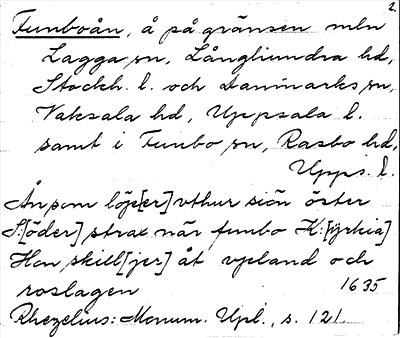 2.
Funboån, å på gränsen mln
Lagga sn, Långhundra hd,
Stockh. l. och Danmarks sn,
Vaksala hd, Uppsala l.
samt i Funbo sn, Rasbo hd,
Upps. l.
Ån som löp[er] vthur siön öster
S:[öder] strax när funbo K:[yrkia]
Hon skill[jer] åt vpland och
roslagen 1635
Rhezelius: Monum. Upl., s. 121.